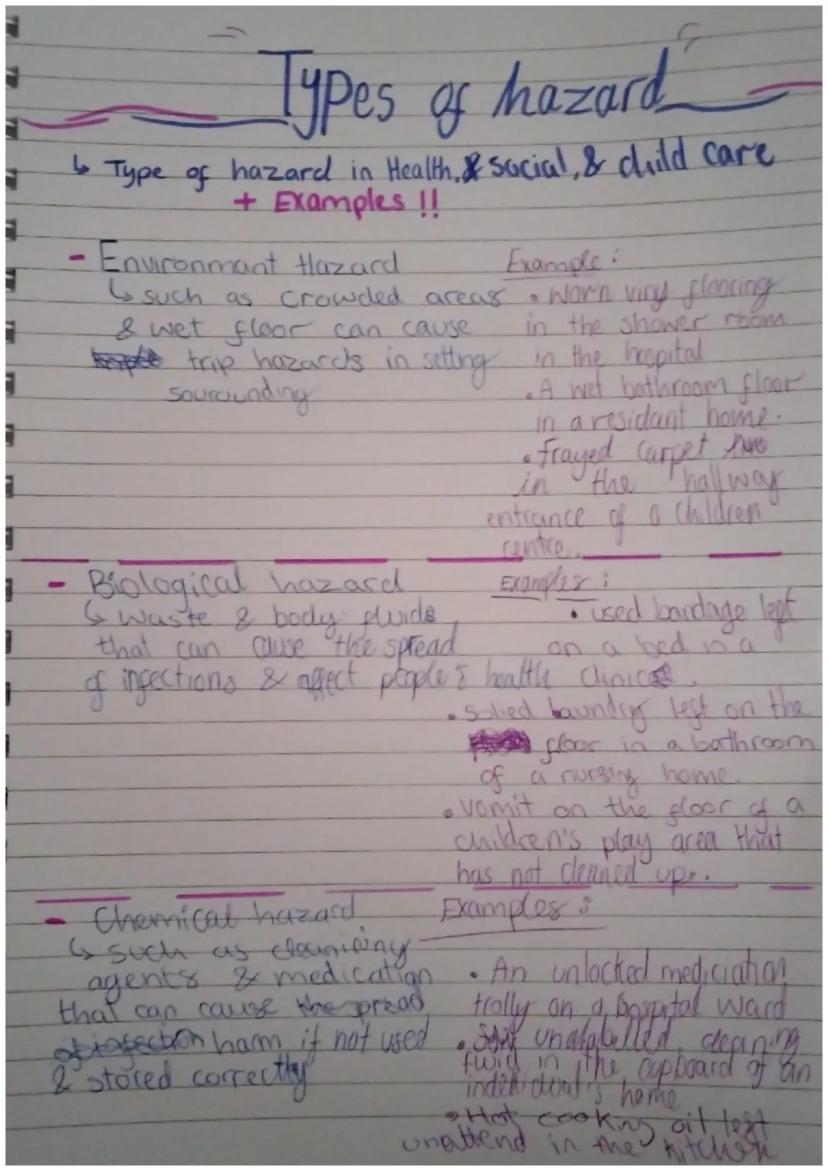 Types of hazard
↳ Type of hazard in Health, & social, & child care
+ Examples !!
- Environmant Hazard
↳ such as crowded areas
& wet floor can cause
trip hazards in setting
sourounding
Example :
• Worn viny flooring
in the shower room
in the hospital
• A wet bathroom floor
in a residant home.
• frayed carpet
in the hallway
entrance of a children
centre.
- Biological hazard
↳ waste & body fluids
that can cause the spread
of infections & affect people's health
Examples :
• used bandage left
on a bed in a
clinic.
• Solied laundry left on the
floor in a bathroom
of a nursing home.
• Vomit on the floor of a
children's play area that
has not cleaned up.
- Chemical hazard
↳ such as
agents & medication
that can cause
harm if not used
& stored correctly
Examples :
• An unlocked mediciation
trolly on a hospital ward
• cleaning
fluid in the cupboard of an
home
• Hot cooking oil left
unattend in the kitchen